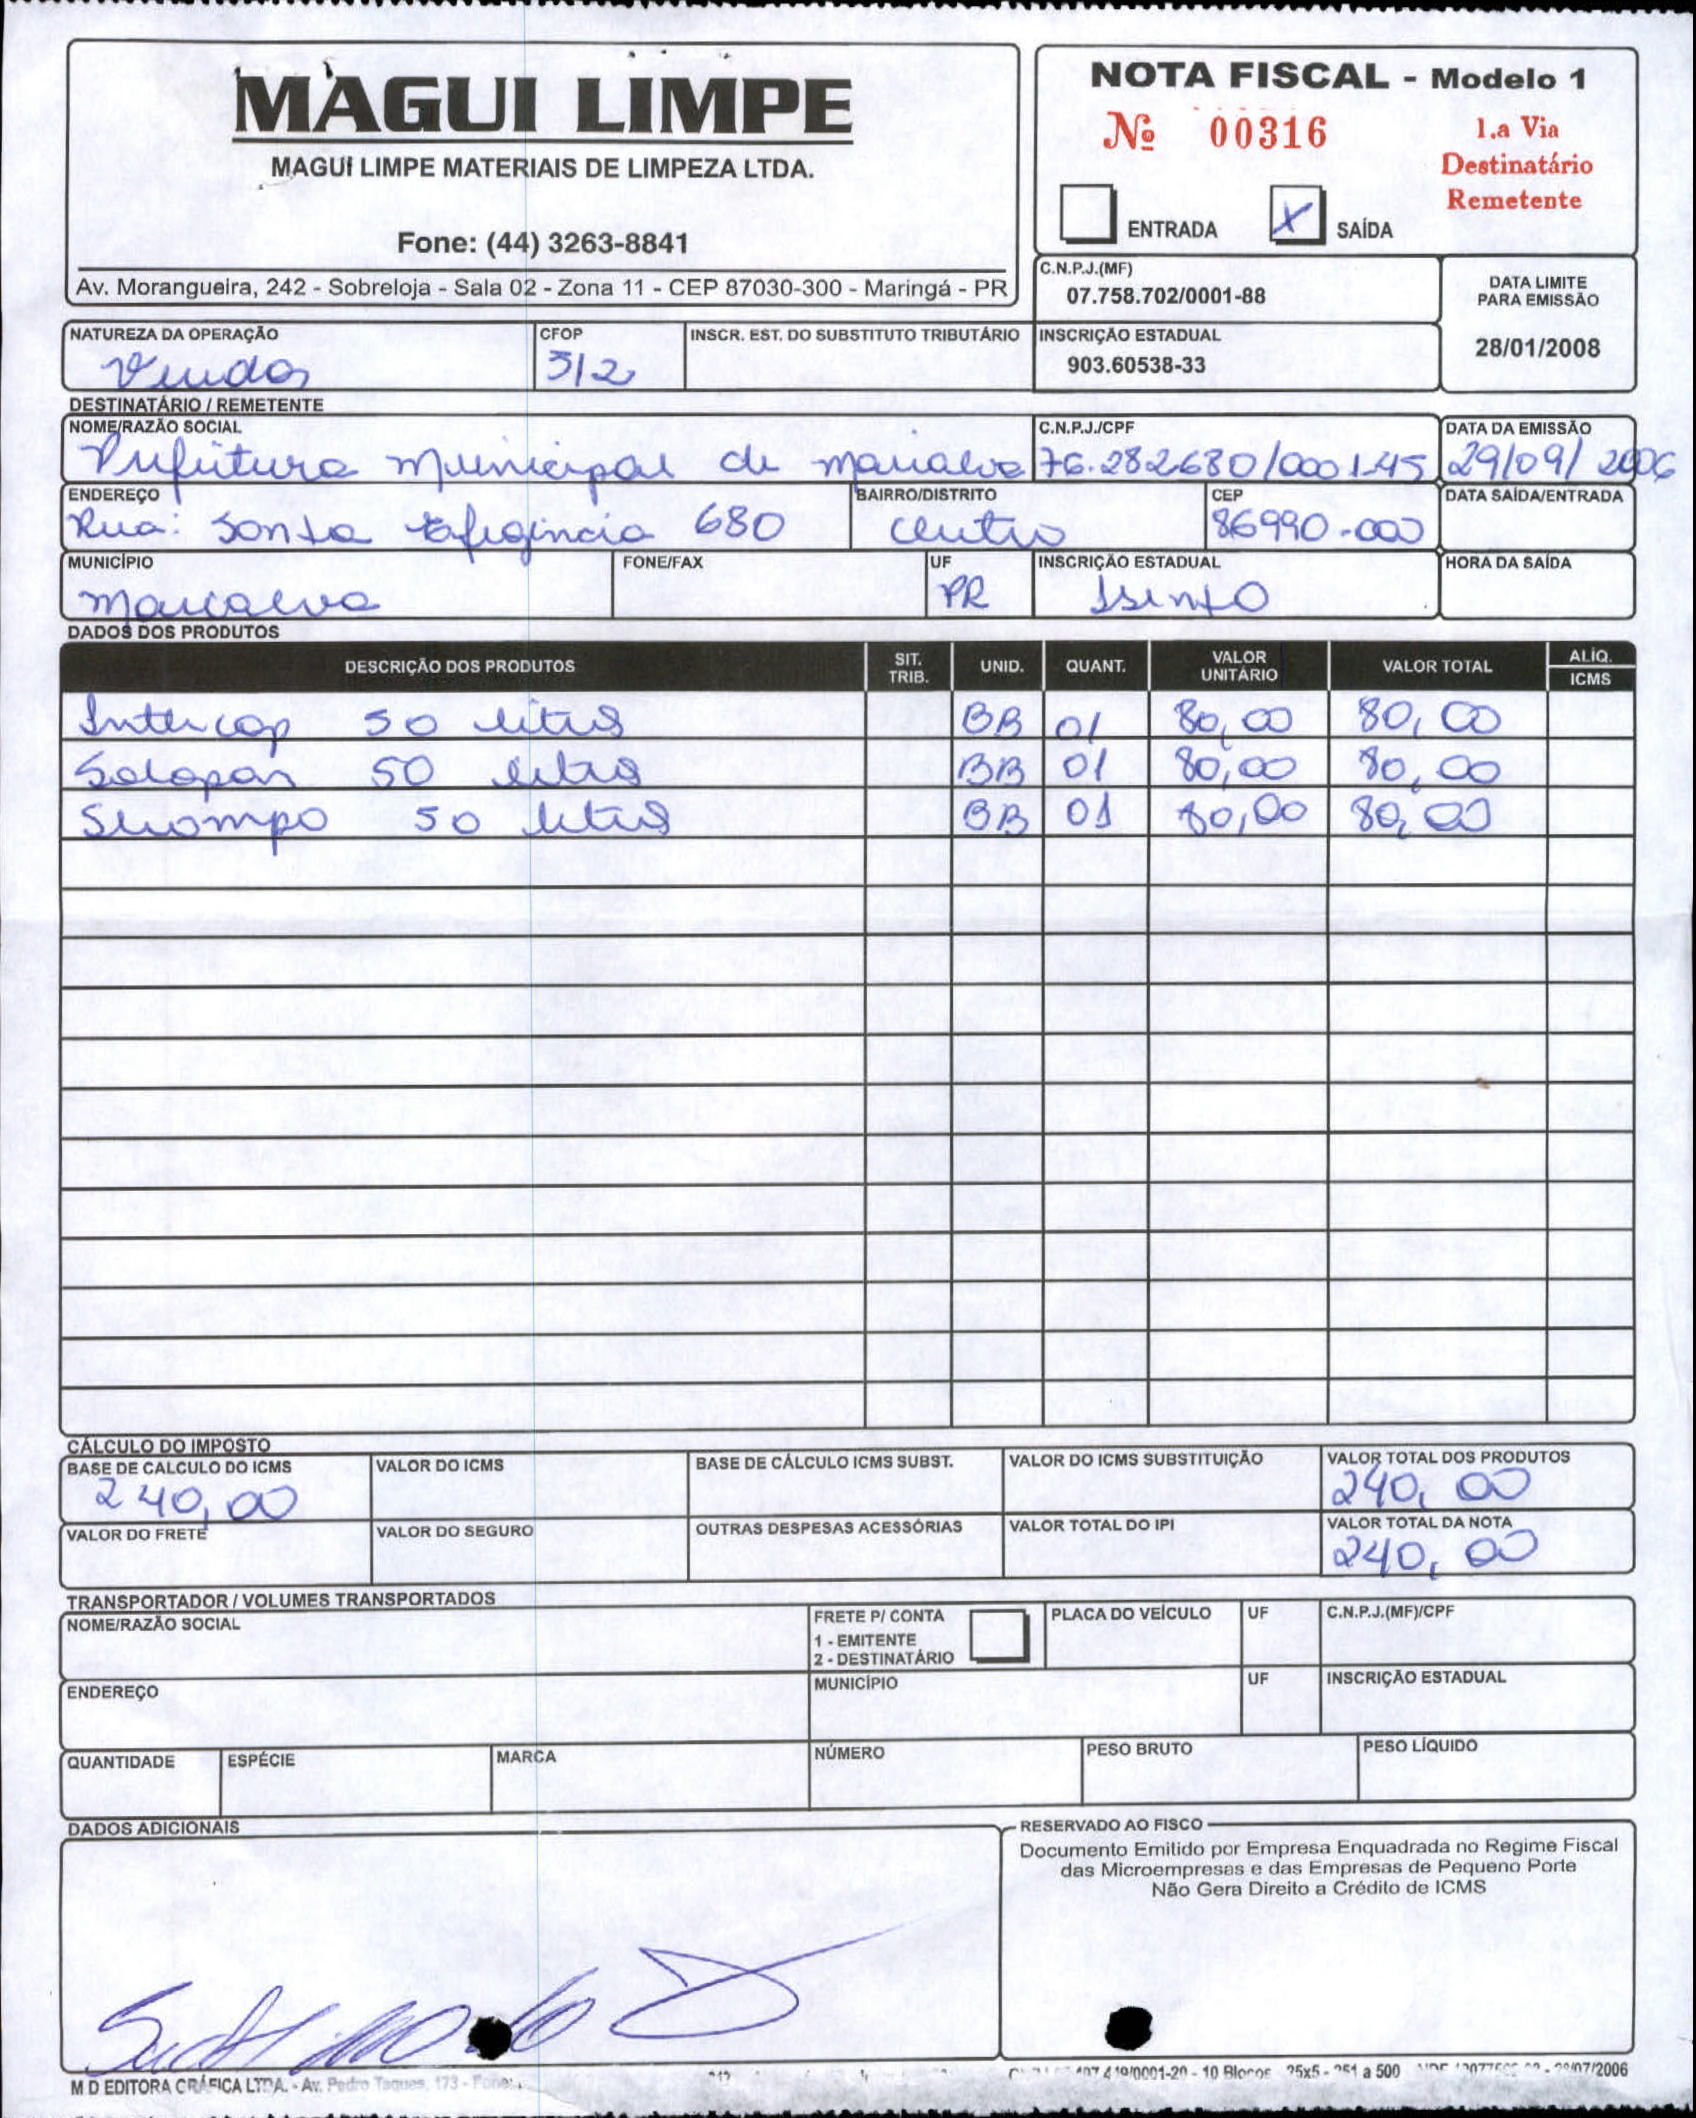 MAGUI LIMPE
MAGUI LIMPE MATERIAIS DE LIMPEZA LTDA.
Fone: (44) 3263-8841
Av. Morangueira, 242 - Sobreloja - Sala 02 - Zona 11 - CEP 87030-300 - Maringá - PR
NOTA FISCAL - Modelo 1
Nº 00316
1.a Via
Destinatário
Remetente
ENTRADA X SAÍDA
C.N.P.J.(MF)
07.758.702/0001-88
DATA LIMITE
PARA EMISSÃO
28/01/2008
NATUREZA DA OPERAÇÃO CFOP INSCR. EST. DO SUBSTITUTO TRIBUTÁRIO INSCRIÇÃO ESTADUAL
Vendas 512 903.60538-33
DESTINATÁRIO / REMETENTE
NOME/RAZÃO SOCIAL C.N.P.J./CPF DATA DA EMISSÃO
Prefeitura municipal de marialva 76.282680/0001-45 29/09/2006
ENDEREÇO BAIRRO/DISTRITO CEP DATA SAÍDA/ENTRADA
Rua: Santa Efigincia 680 Centro 86990-000
MUNICÍPIO FONE/FAX UF INSCRIÇÃO ESTADUAL HORA DA SAÍDA
marialva PR Isento
DADOS DOS PRODUTOS
DESCRIÇÃO DOS PRODUTOS SIT. TRIB. UNID. QUANT. VALOR UNITÁRIO VALOR TOTAL ALÍQ. ICMS
Intercap 50 litros BB 01 80,00 80,00
Solopan 50 litros BB 01 80,00 80,00
50 litros BB 01 80,00 80,00
CÁLCULO DO IMPOSTO
BASE DE CALCULO DO ICMS VALOR DO ICMS BASE DE CÁLCULO ICMS SUBST. VALOR DO ICMS SUBSTITUIÇÃO VALOR TOTAL DOS PRODUTOS
240,00 240,00
VALOR DO FRETE VALOR DO SEGURO OUTRAS DESPESAS ACESSÓRIAS VALOR TOTAL DO IPI VALOR TOTAL DA NOTA
240,00
TRANSPORTADOR / VOLUMES TRANSPORTADOS
NOME/RAZÃO SOCIAL FRETE P/ CONTA PLACA DO VEÍCULO UF C.N.P.J.(MF)/CPF
1 - EMITENTE
2 - DESTINATÁRIO
ENDEREÇO MUNICÍPIO UF INSCRIÇÃO ESTADUAL
QUANTIDADE ESPÉCIE MARCA NÚMERO PESO BRUTO PESO LÍQUIDO
DADOS ADICIONAIS
RESERVADO AO FISCO
Documento Emitido por Empresa Enquadrada no Regime Fiscal
das Microempresas e das Empresas de Pequeno Porte
Não Gera Direito a Crédito de ICMS
M D EDITORA GRÁFICA LTDA. - Av. Pedro Taques, 173 - Fone: 419/0001-20 - 10 Blocos 25x5 - 251 a 500 07/2006